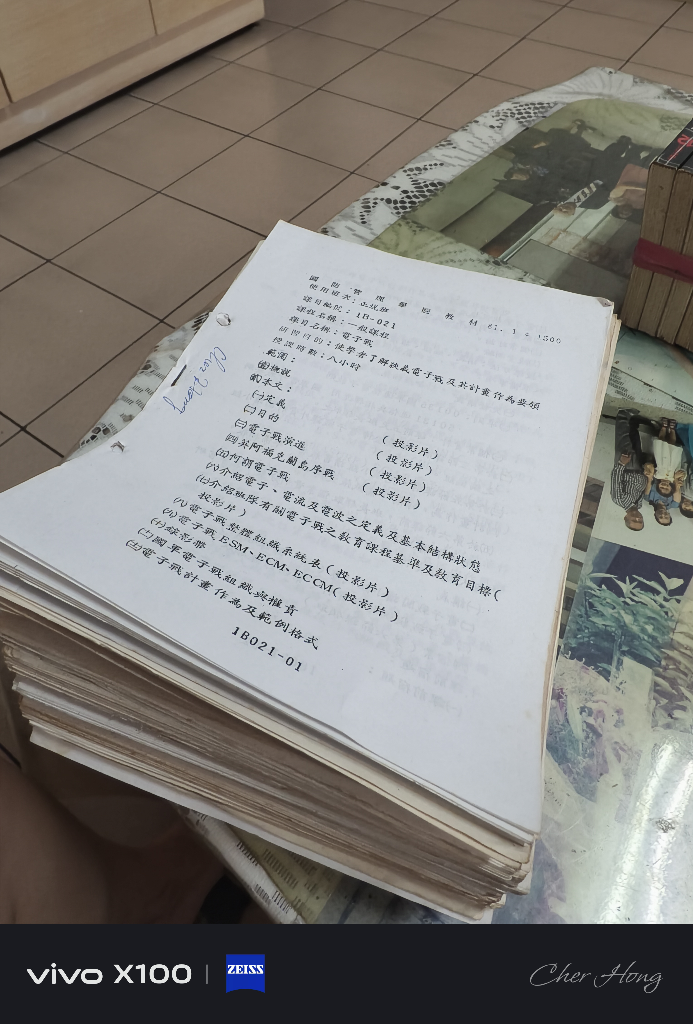 國防管理學院教材 81. 1 - 1500
使用班次：正規班
課目編號：1B-021
課程名稱：一般課程
課目名稱：電子戰
研習目的：使學者了解狹義電子戰及其計畫作為要領
授課時數：八小時
範圍：
壹概說
貳本文：
㈠定義
㈡目的 (投影片)
㈢電子戰演進 (投影片)
㈣英阿福克蘭島序戰 (投影片)
㈤何謂電子戰 (投影片)
㈥介紹電子、電流及電波之定義及基本結構狀態
㈦介紹班隊有關電子戰之教育課程基準及教育目標(
投影片)
㈧電子戰整體組織系統表(投影片)
㈨電子戰ESM、ECM、ECCM(投影片)
㈩錄影帶
㈡國軍電子戰組織與權責
電子戰計畫作為及範例格式
1B021-01
Cher Hong
vivo X100 | ZEISS
Cher Hong